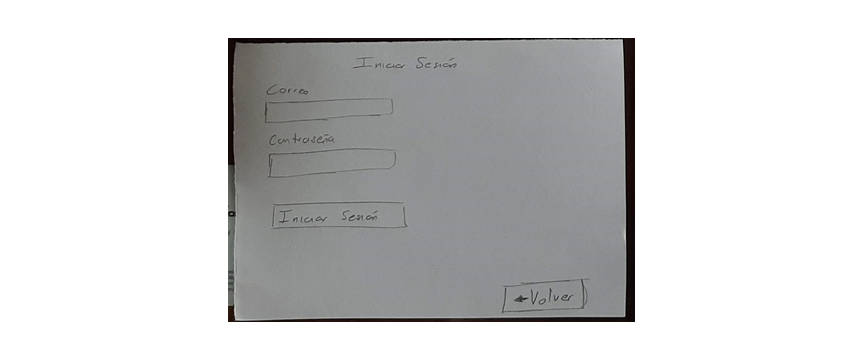 Iniciar Sesión
Correo
Contraseña
Iniciar Sesión
←Volver